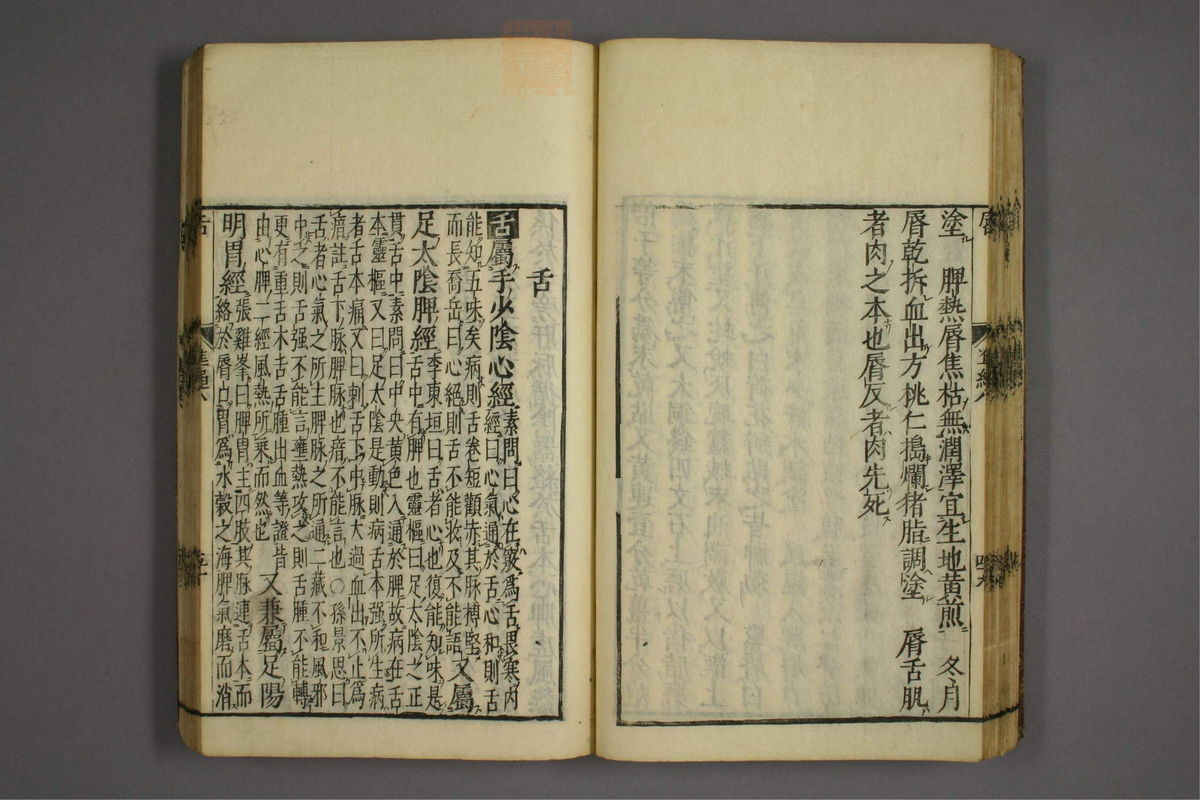 塗 脾熱脣焦枯無潤澤宜生地黄煎 冬月
脣乾拆血出方桃仁搗爛猪脂調塗 脣舌肌
者肉之本也脣反者肉先死
舌
舌屬手少陰心經
素問曰心在竅爲舌畏寒内
經曰心氣通於舌心和則舌
能知五味矣病則舌卷短顴赤其脉搏堅
而長喬岳曰心絕則舌不能收及不能語
又屬
足太陰脾經
李東垣曰舌者心也復能知味是
舌中有脾也靈樞曰足太陰之正
貫舌中素問曰中央黄色入通於脾故病在舌
本靈樞又曰足太陰是動則病舌本强所生病
者舌本痛又曰刺舌下中脉大過血出不止爲
瘖註舌下脉脾脉也瘖不能言也○孫景思曰
舌者心氣之所主脾脉之所通二藏不和風邪
中之則舌强不能言壅熱攻之則舌腫不能轉
更有重舌木舌舌腫出血等證皆
由心脾二經風熱所乗而然也
又兼屬足陽
明胃經
張雞峯曰脾胃主四肢其脉連舌本而
絡於脣口胃爲水穀之海脾氣磨而消